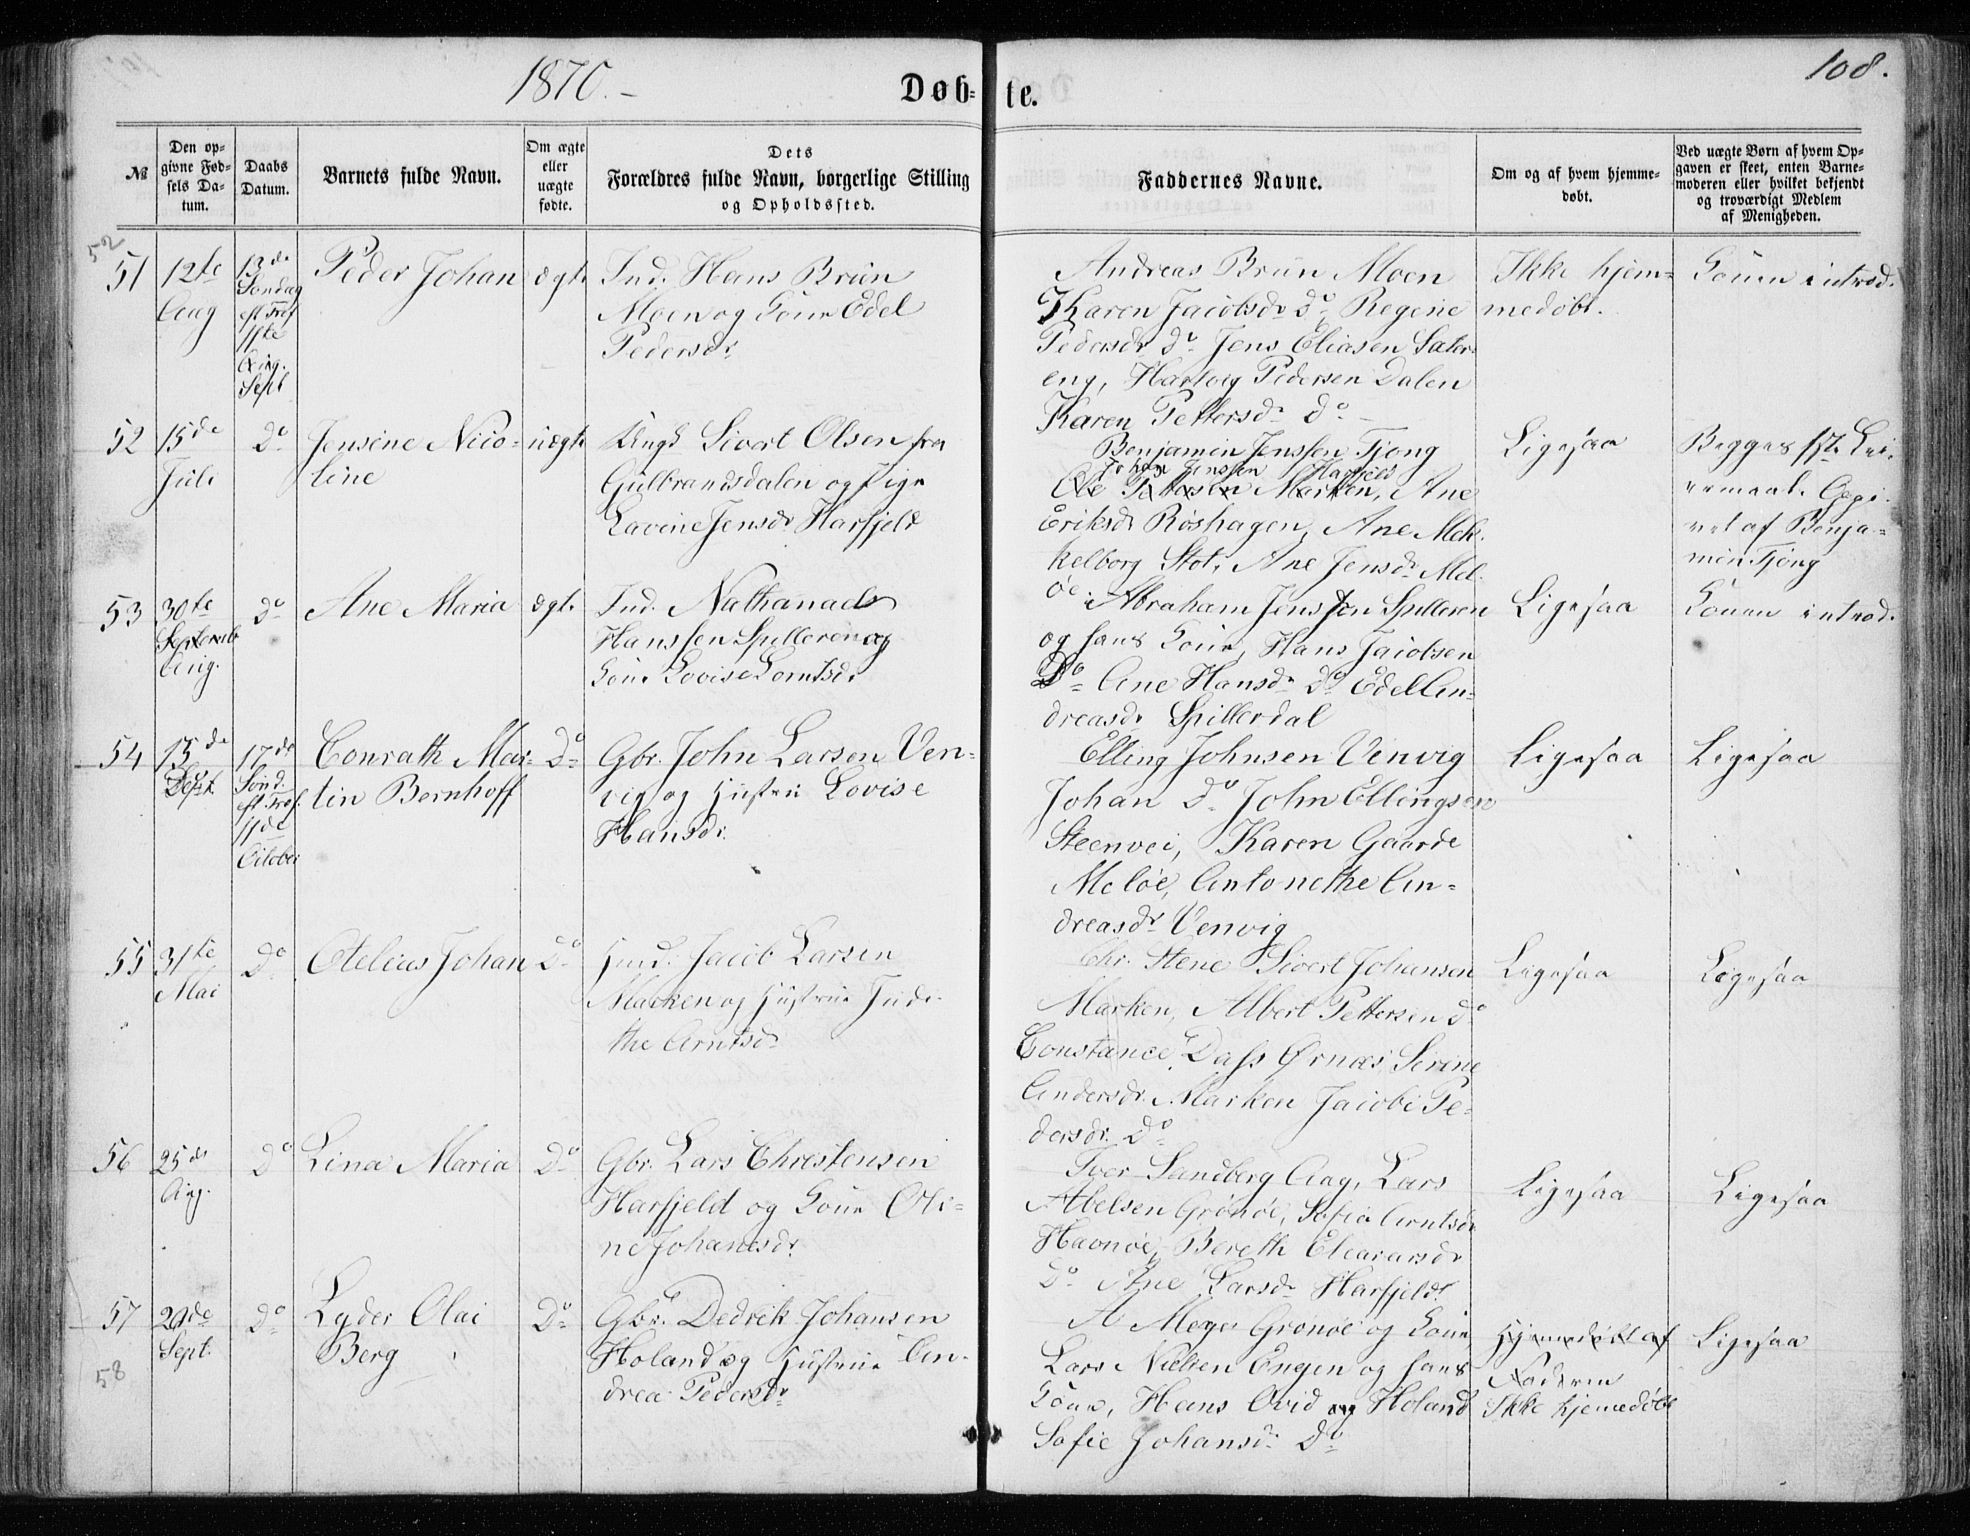 1870.-
108.
Døb-te.
№
Den op-
givne Fød-
sels Da-
tum.
Daabs
Datum.
Barnets fulde Navn.
Om ægte
eller
uægte
fødte.
Dets
Forældres fulde Navn, borgerlige Stilling
og Opholdssted.
Faddernes Navne.
Om og af hvem hjemme-
døbt.
Ved uægte Børn af hvem Op-
gaven er skeet, enten Barne-
moderen eller hvilket bekjendt
og troværdigt Medlem
af Menigheden.
52
51
12te
Aug
13de
Søndag
eft. Tref
11te
Sept
Peder Johan
ægte
Ind. Hans Brun
Moen og Kone Edel
Pedersdr
Andreas Brun Moen
Karen Jacobsdr Do Regine
Pedersdr Do Jens Eliasen Sæter-
eng, Hartvig Pedersen Dalen
Karen Pettersdr Do
Ikke hjem-
medøbt.
Konen introd.
52
15de
Juli
Do
Jensine Nico-
line
uægte
Ungk Sivert Olsen fra
Gulbrandsdalen og Pige
Lavine Jensdr Harfjeld
Benjamin Jenssen Tjong
Johan Jenssen Harfjeld
Ole Pettersen Marken, Ane
Eriksdr Røshagen, Ane Mek-
kelborg Stot, Ane Jensdr Mel-
øe
Ligesaa
Begges 1ste Lei-
ermaal. Opgi-
vet af Benja-
min Tjong
53
30te
Septemb
Aug.
Do
Ane Maria
ægte
Ind. Nathanael
Hanssen Spilleren og
Kone Lovise Lorntsdr
Abraham Jenssen Spilleren
og hans Kone, Hans Jacobsen
Do Ane Hansdr Do Edel An-
dreasdr Spillerdal
Ligesaa
Konen introd.
54
15de
Sept
17de
Sønd.
eft. Tref.
October
Conrath Mar-
tin Bernhoff
Do
Gbr. John Larsen Ven-
vig og Hustru Lovise
Hansdr.
Elling Johnsen Venvig
Johan Do John Ellingsen
Steenvei, Karen Gaarde
Meløe, Antonethe An-
dreasdr Venvig
Ligesaa
Ligesaa
55
31te
Mai
Do
Otelius Johan
Do
Hmd. Jacob Larsen
Marken og Hustrue Judi-
the Arntsdr
Chr. Stene Sivert Johansen
Marken, Albert Pettersen Do
Constance Dass Ørnæs, Serine
Andersdr. Marken Jacobe Pe-
dersdr. Do
Ligesaa
Ligesaa
56
25de
Aug.
Do
Lina Maria
Do
Gbr. Lars Christensen
Harfjeld og Kone Oli-
ne Johansdr.
Iver Sandberg Aag, Lars
Abelsen Grønøe, Sofia Arntsdr
Havnøe, Bereth Eleasarsdr
Do Ane Larsdr Harfjeld
Ligesaa
Ligesaa
57
29de
Sept.
Do
Lyder Olai
Berg
Do
Gbr. Dedrik Johansen
Holand og Hustrue An-
drea Pedersdr
A Meyer Grønøe og Kone
Lars Nielsen Engen og hans
Kone, Hans Ovid og Holand
Sofie Johansdr Do
Hjemmedøbt af
Faderen
Ikke hjemedøbt
Ligesaa
58